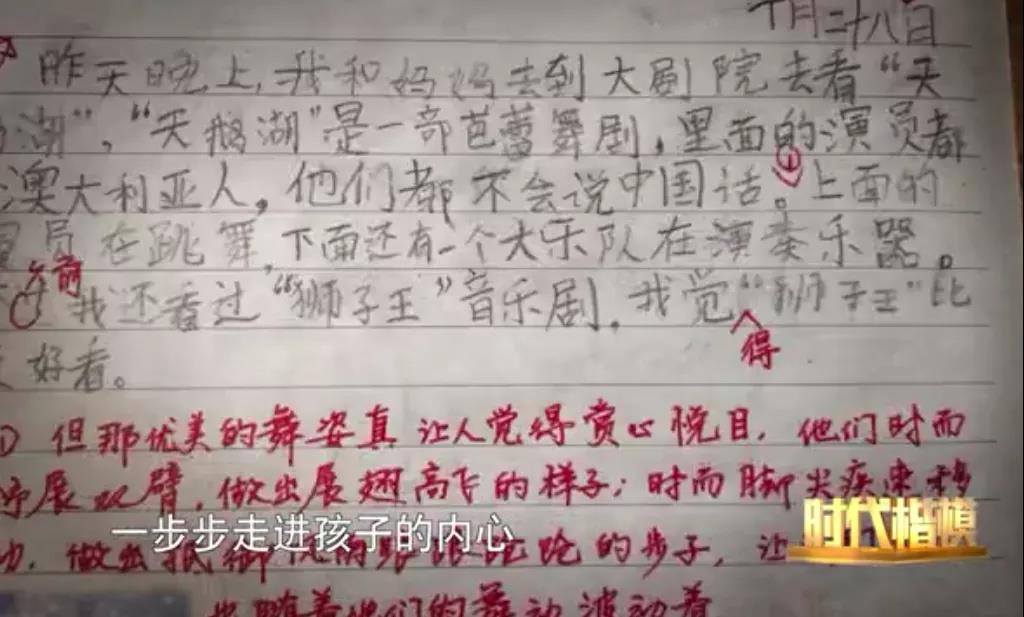 十月二十八日
昨天晚上,我和妈妈去到大剧院去看“天
湖”,“天鹅湖”是一部芭蕾舞剧,里面的演员都
澳大利亚人,他们都不会说中国话。上面的
员在跳舞,下面还有一个大乐队在演奏乐器。
①
前
我还看过“狮子王”音乐剧,我觉“狮子王”比
得
好看。
但那优美的舞姿真让人觉得赏心悦目,他们时而
展双臂,做出展翅高飞的样子;时而脚尖疾速移
一步步走进孩子的内心
时代楷模
动,做出
的步子,让
随着他们的舞动波动着